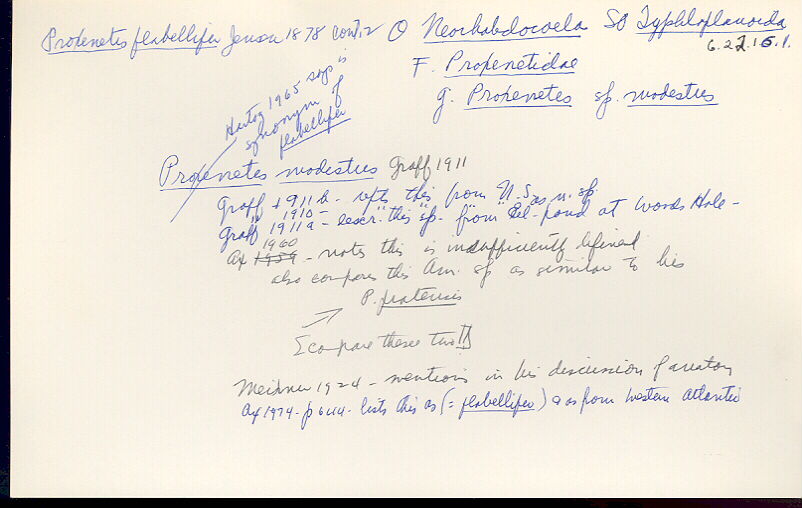 Proxenetes flabellifer Jensen 1878 cont. 2 O Neorhabdocoela SO Typhloplanoida
6.22.16.1.
F. Proxenetidae
g. Proxenetes sp. modestus
Hartog 1965 says is
synonym of
flabellifer
Proxenetes modestus Graff 1911
Graff 1911b - repts this from U.S. as n. sp.
Graff 1910 - 1911a - descr. "this" sp. "from" Eel-pond at Woods Hole -
1960
Ax 1959 - notes this is insufficiently defined
also compares this Am. sp as similar to his
P. pratensis
[compare these two!!]
Meixner 1924 - mentions in his discussion of anatomy
Ax 1974 - p 6414 - lists this as (= flabellifer) as from Western Atlantic